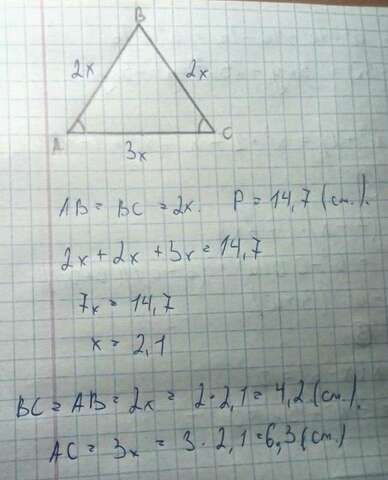 B
2x 2x
A C
3x
AB = BC = 2x. P = 14,7 (см.).
2x + 2x + 3x = 14,7
7x = 14,7
x = 2,1
BC = AB = 2x = 2 · 2,1 = 4,2 (см.).
AC = 3x = 3 · 2,1 = 6,3 (см.)